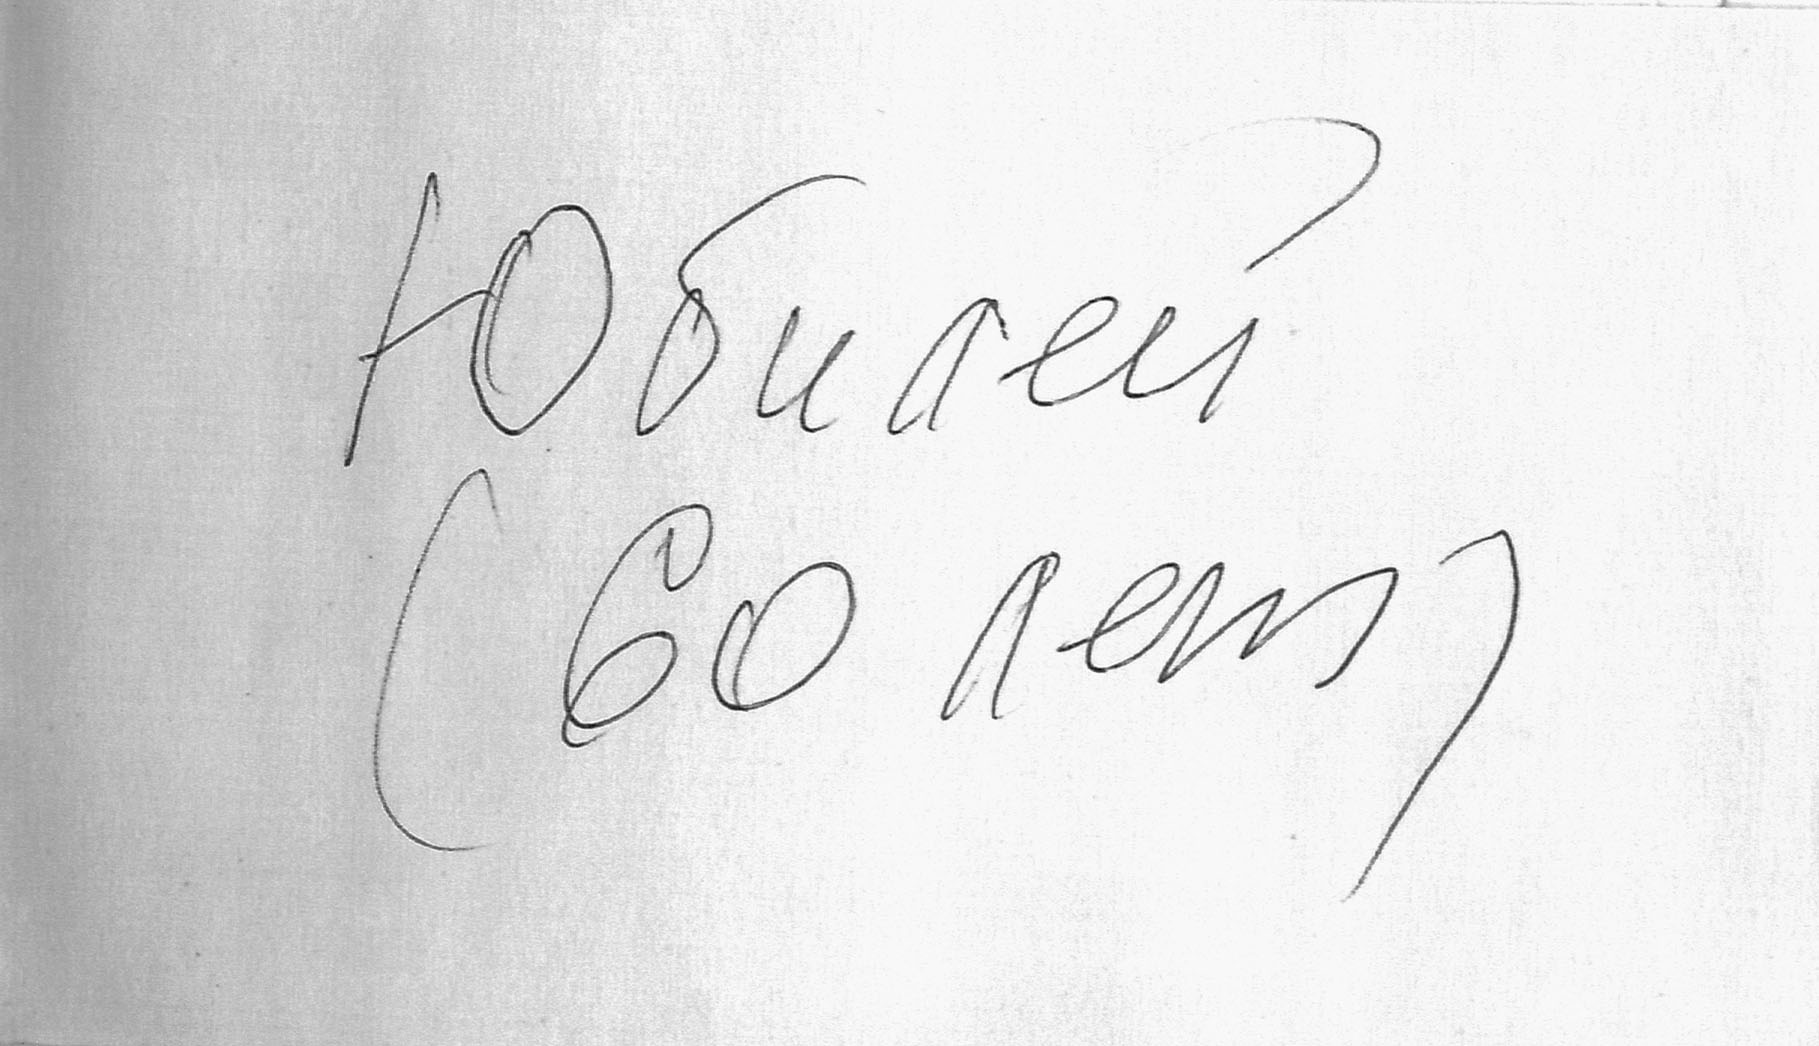 Юбилей
(60 лет)